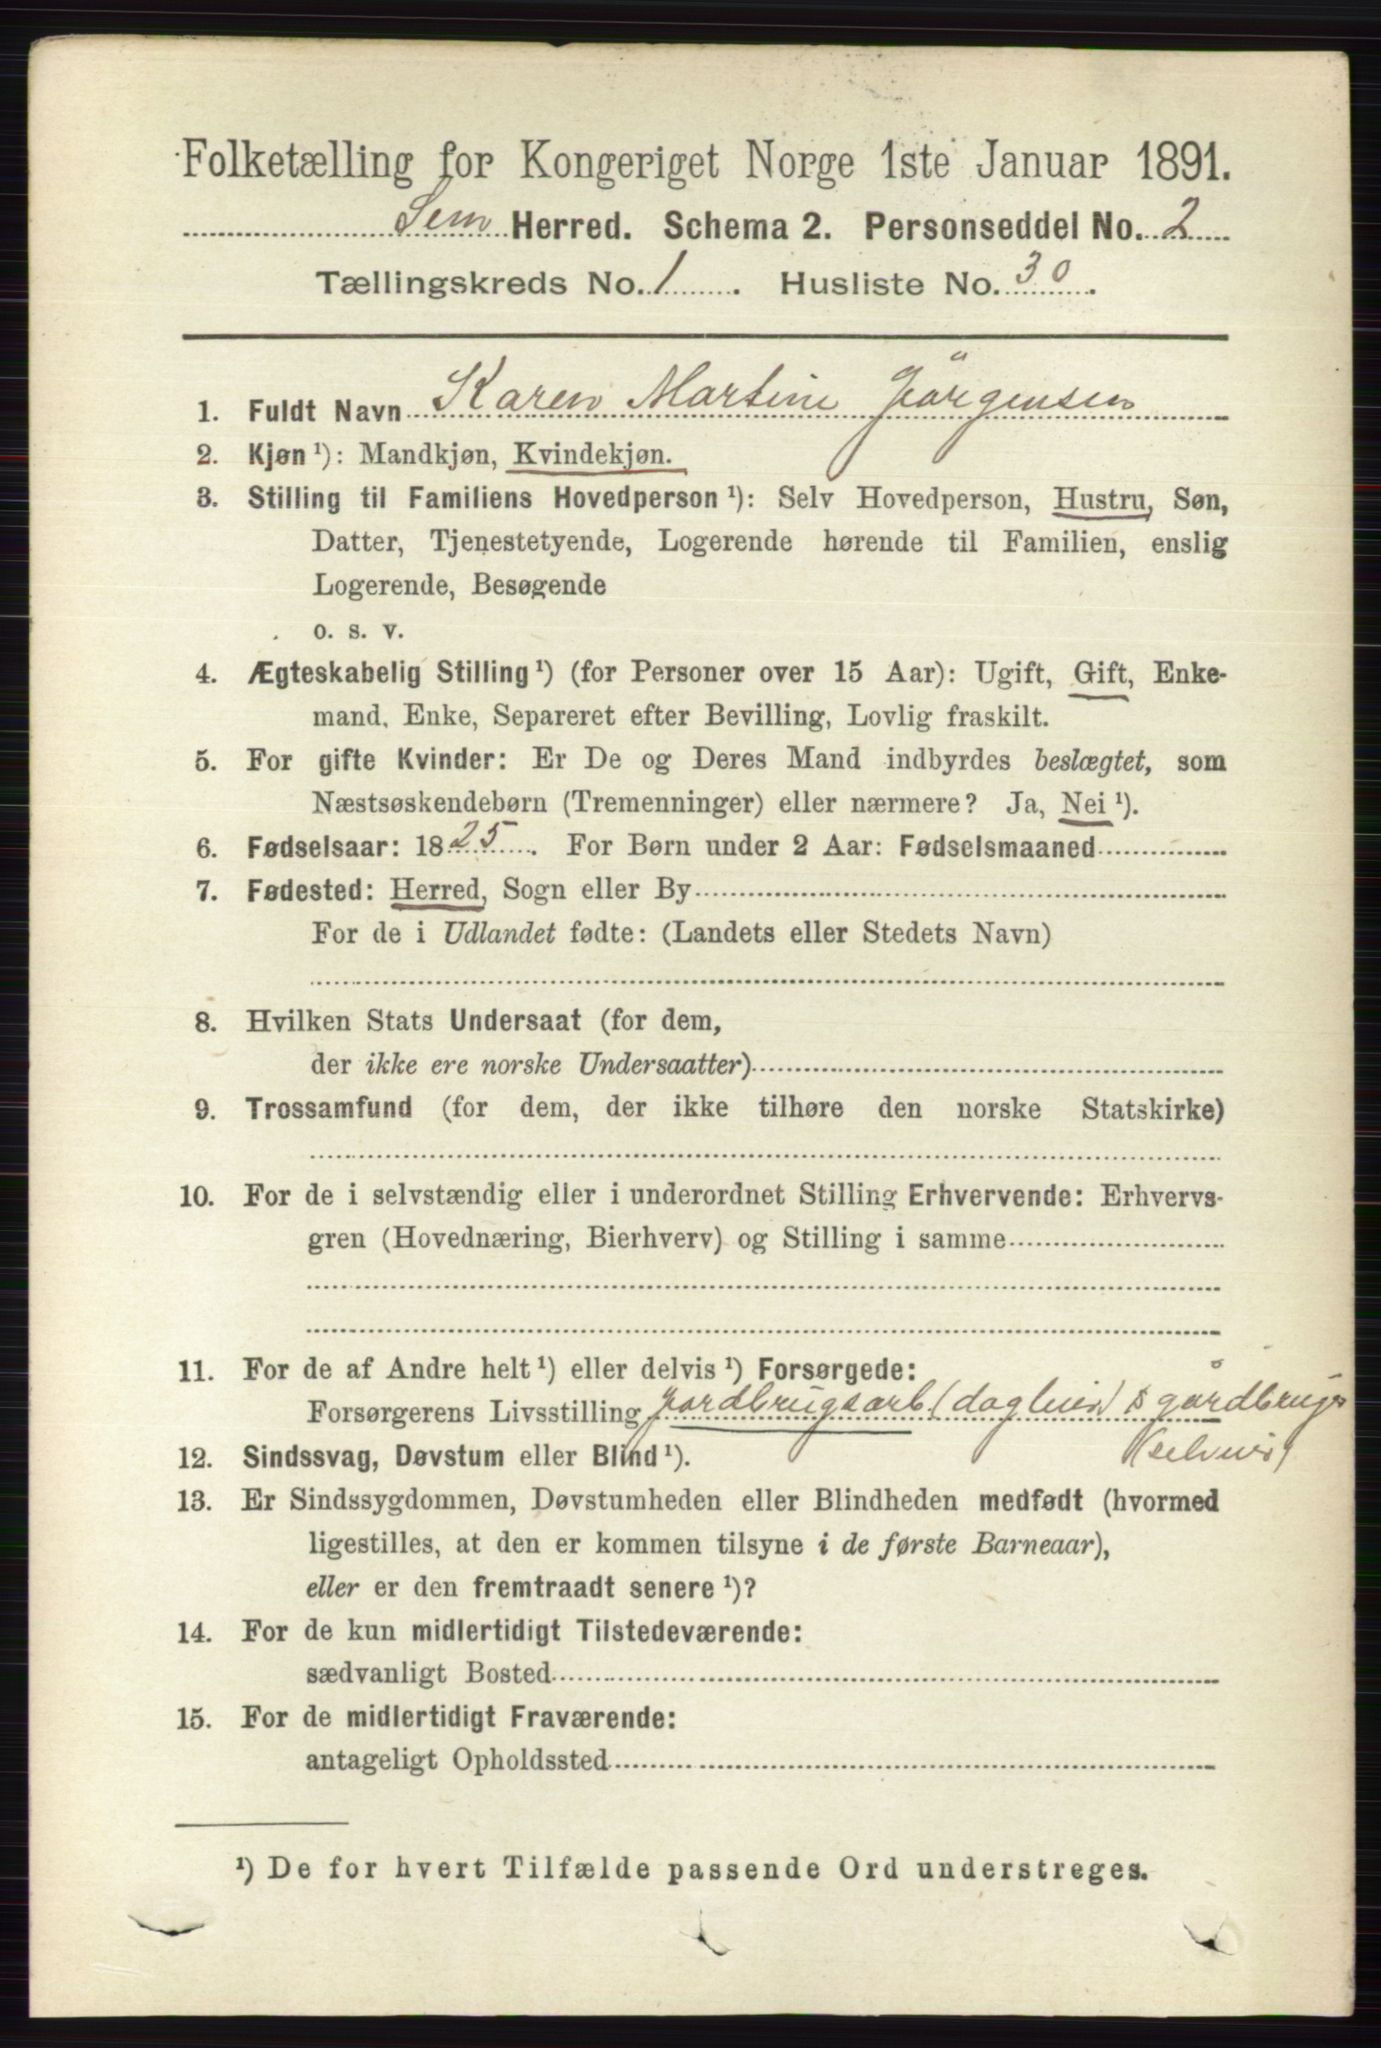 Folketælling for Kongeriget Norge 1ste Januar 1891.
Sem Herred. Schema 2. Personseddel No. 2
Tællingskreds No. 1. Husliste No. 30.
1. Fuldt Navn Karen Martine Jörgensen
2. Kjøn ¹): Mandkjøn, Kvindekjøn.
3. Stilling til Familiens Hovedperson ¹): Selv Hovedperson, Hustru, Søn,
Datter, Tjenestetyende, Logerende hørende til Familien, enslig
Logerende, Besøgende
o. s. v.
4. Ægteskabelig Stilling ¹) (for Personer over 15 Aar): Ugift, Gift, Enke-
mand, Enke, Separeret efter Bevilling, Lovlig fraskilt.
5. For gifte Kvinder: Er De og Deres Mand indbyrdes beslægtet, som
Næstsøskendebørn (Tremenninger) eller nærmere? Ja, Nei ¹).
6. Fødselsaar: 1825. For Børn under 2 Aar: Fødselsmaaned
7. Fødested: Herred, Sogn eller By
For de i Udlandet fødte: (Landets eller Stedets Navn)
8. Hvilken Stats Undersaat (for dem,
der ikke ere norske Undersaatter)
9. Trossamfund (for dem, der ikke tilhøre den norske Statskirke)
10. For de i selvstændig eller i underordnet Stilling Erhvervende: Erhvervs-
gren (Hovednæring, Bierhverv) og Stilling i samme
11. For de af Andre helt ¹) eller delvis ¹) Forsørgede:
Forsørgerens Livsstilling Jordbrugsarb (dagleier) & gårdbruger
(selveier)
12. Sindssvag, Døvstum eller Blind ¹).
13. Er Sindssygdommen, Døvstumheden eller Blindheden medfødt (hvormed
ligestilles, at den er kommen tilsyne i de første Barneaar),
eller er den fremtraadt senere ¹)?
14. For de kun midlertidigt Tilstedeværende:
sædvanligt Bosted
15. For de midlertidigt Fraværende:
antageligt Opholdssted
¹) De for hvert Tilfælde passende Ord understreges.